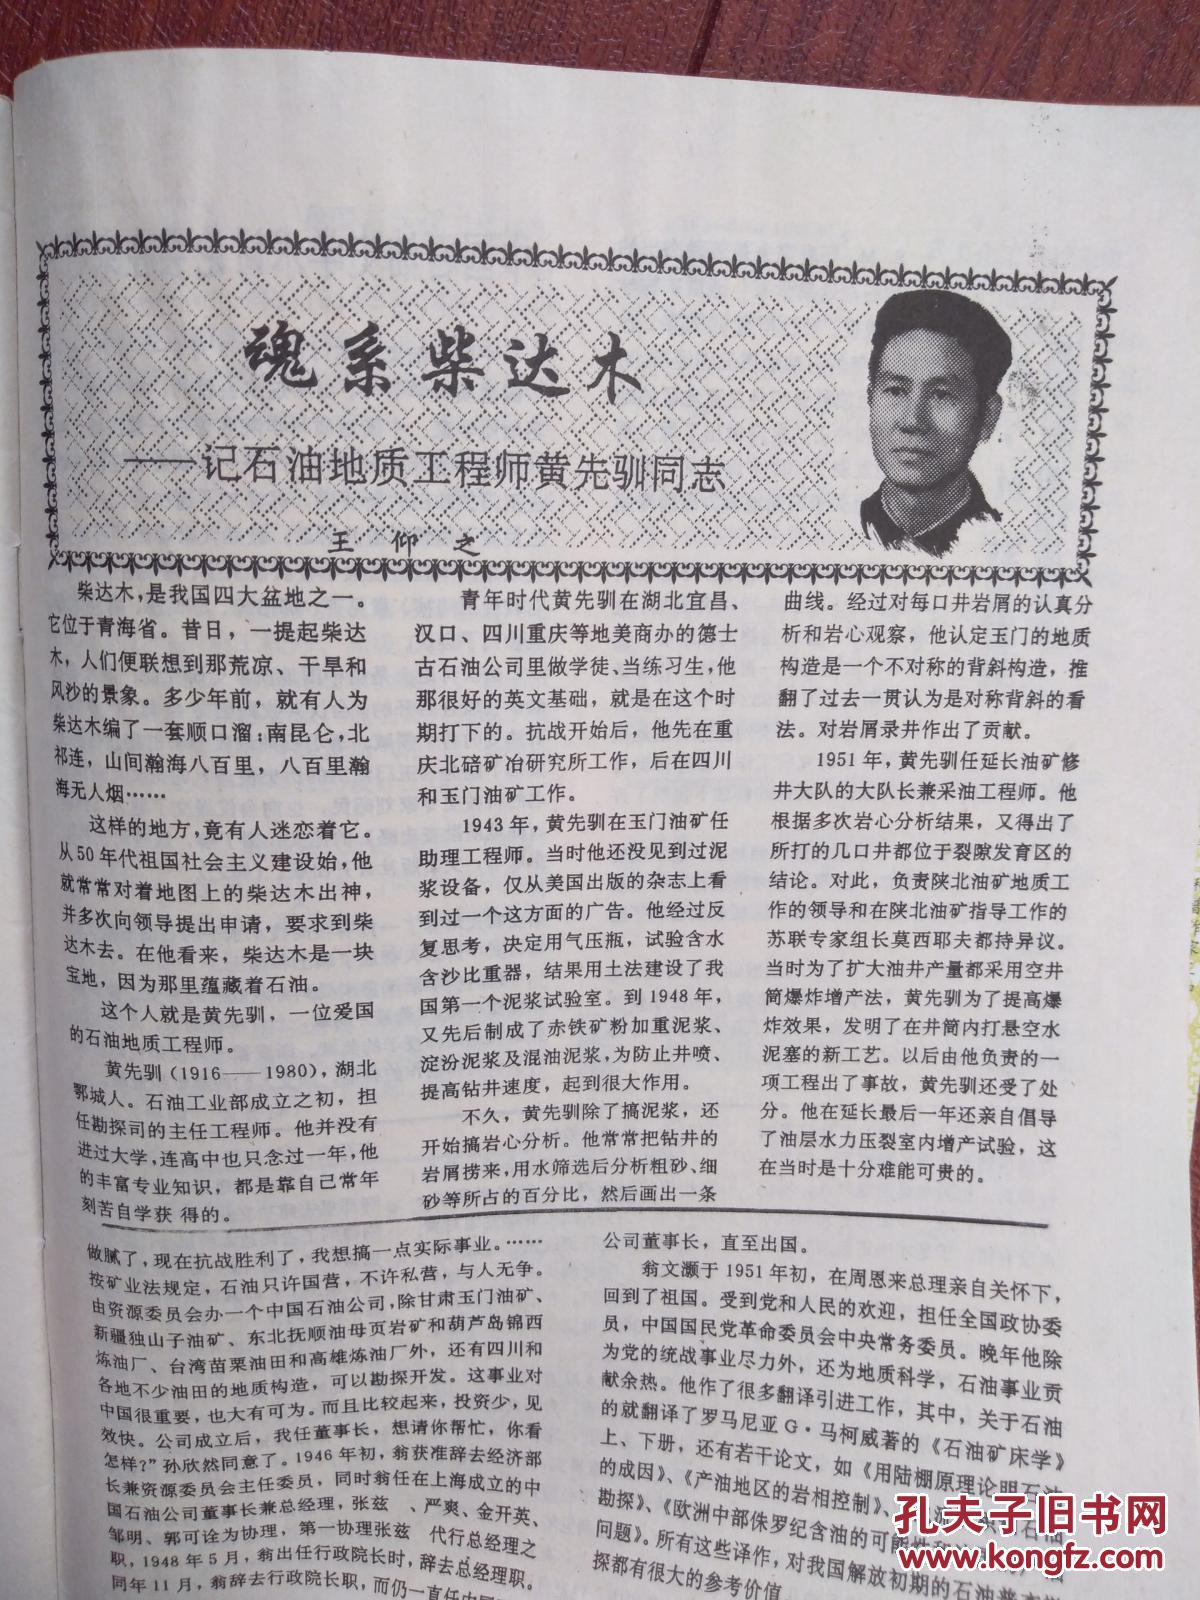 魂系柴达木
——记石油地质工程师黄先驯同志
王仰之
柴达木，是我国四大盆地之一。
它位于青海省。昔日，一提起柴达
木，人们便联想到那荒凉、干旱和
风沙的景象。多少年前，就有人为
柴达木编了一套顺口溜：南昆仑，北
祁连，山间瀚海八百里，八百里瀚
海无人烟……
这样的地方，竟有人迷恋着它。
从50年代祖国社会主义建设始，他
就常常对着地图上的柴达木出神，
并多次向领导提出申请，要求到柴
达木去。在他看来，柴达木是一块
宝地，因为那里蕴藏着石油。
这个人就是黄先驯，一位爱国
的石油地质工程师。
黄先驯（1916——1980），湖北
鄂城人。石油工业部成立之初，担
任勘探司的主任工程师。他并没有
进过大学，连高中也只念过一年，他
的丰富专业知识，都是靠自己常年
刻苦自学获 得的。
青年时代黄先驯在湖北宜昌、
汉口、四川重庆等地美商办的德士
古石油公司里做学徒、当练习生，他
那很好的英文基础，就是在这个时
期打下的。抗战开始后，他先在重
庆北碚矿冶研究所工作，后在四川
和玉门油矿工作。
1943年，黄先驯在玉门油矿任
助理工程师。当时他还没见到过泥
浆设备，仅从美国出版的杂志上看
到过一个这方面的广告。他经过反
复思考，决定用气压瓶，试验含水
含沙比重器，结果用土法建设了我
国第一个泥浆试验室。到1948年，
又先后制成了赤铁矿粉加重泥浆、
淀汾泥浆及混油泥浆，为防止井喷、
提高钻井速度，起到很大作用。
不久，黄先驯除了搞泥浆，还
开始搞岩心分析。他常常把钻井的
岩屑捞来，用水筛选后分析粗砂、细
砂等所占的百分比，然后画出一条
曲线。经过对每口井岩屑的认真分
析和岩心观察，他认定玉门的地质
构造是一个不对称的背斜构造，推
翻了过去一贯认为是对称背斜的看
法。对岩屑录井作出了贡献。
1951年，黄先驯任延长油矿修
井大队的大队长兼采油工程师。他
根据多次岩心分析结果，又得出了
所打的几口井都位于裂隙发育区的
结论。对此，负责陕北油矿地质工
作的领导和在陕北油矿指导工作的
苏联专家组长莫西耶夫都持异议。
当时为了扩大油井产量都采用空井
筒爆炸增产法，黄先驯为了提高爆
炸效果，发明了在井筒内打悬空水
泥塞的新工艺。以后由他负责的一
项工程出了事故，黄先驯还受了处
分。他在延长最后一年还亲自倡导
了油层水力压裂室内增产试验，这
在当时是十分难能可贵的。
做腻了，现在抗战胜利了，我想搞一点实际事业。……
按矿业法规定，石油只许国营，不许私营，与人无争。
由资源委员会办一个中国石油公司，除甘肃玉门油矿、
新疆独山子油矿、东北抚顺油母页岩矿和葫芦岛锦西
炼油厂、台湾苗栗油田和高雄炼油厂外，还有四川和
各地不少油田的地质构造，可以勘探开发。这事业对
中国很重要，也大有可为。而且比较起来，投资少，见
效快。公司成立后，我任董事长，想请你帮忙，你看
怎样？”孙欣然同意了。1946年初，翁获准辞去经济部
长兼资源委员会主任委员，同时翁任在上海成立的中
国石油公司董事长兼总经理，张兹 、严爽、金开英、
邹明、郭可诠为协理，第一协理张兹 代行总经理之
职，1948年5月，翁出任行政院长时，辞去总经理职。
同年11月，翁辞去行政院长职，而仍一直任中国
公司董事长，直至出国。
翁文灏于1951年初，在周恩来总理亲自关怀下，
回到了祖国。受到党和人民的欢迎，担任全国政协委
员，中国国民党革命委员会中央常务委员。晚年他除
为党的统战事业尽力外，还为地质科学，石油事业贡
献余热。他作了很多翻译引进工作，其中，关于石油
的就翻译了罗马尼亚G·马柯威著的《石油矿床学》
上、下册，还有若干论文，如《用陆棚原理论明石油
的成因》、《产油地区的岩相控制》、
勘探》、《欧洲中部侏罗纪含油的可能性和
问题》。所有这些译作，对我国解放初期的石油普查
探都有很大的参考价值
孔夫子旧书网
www.kongfz.com